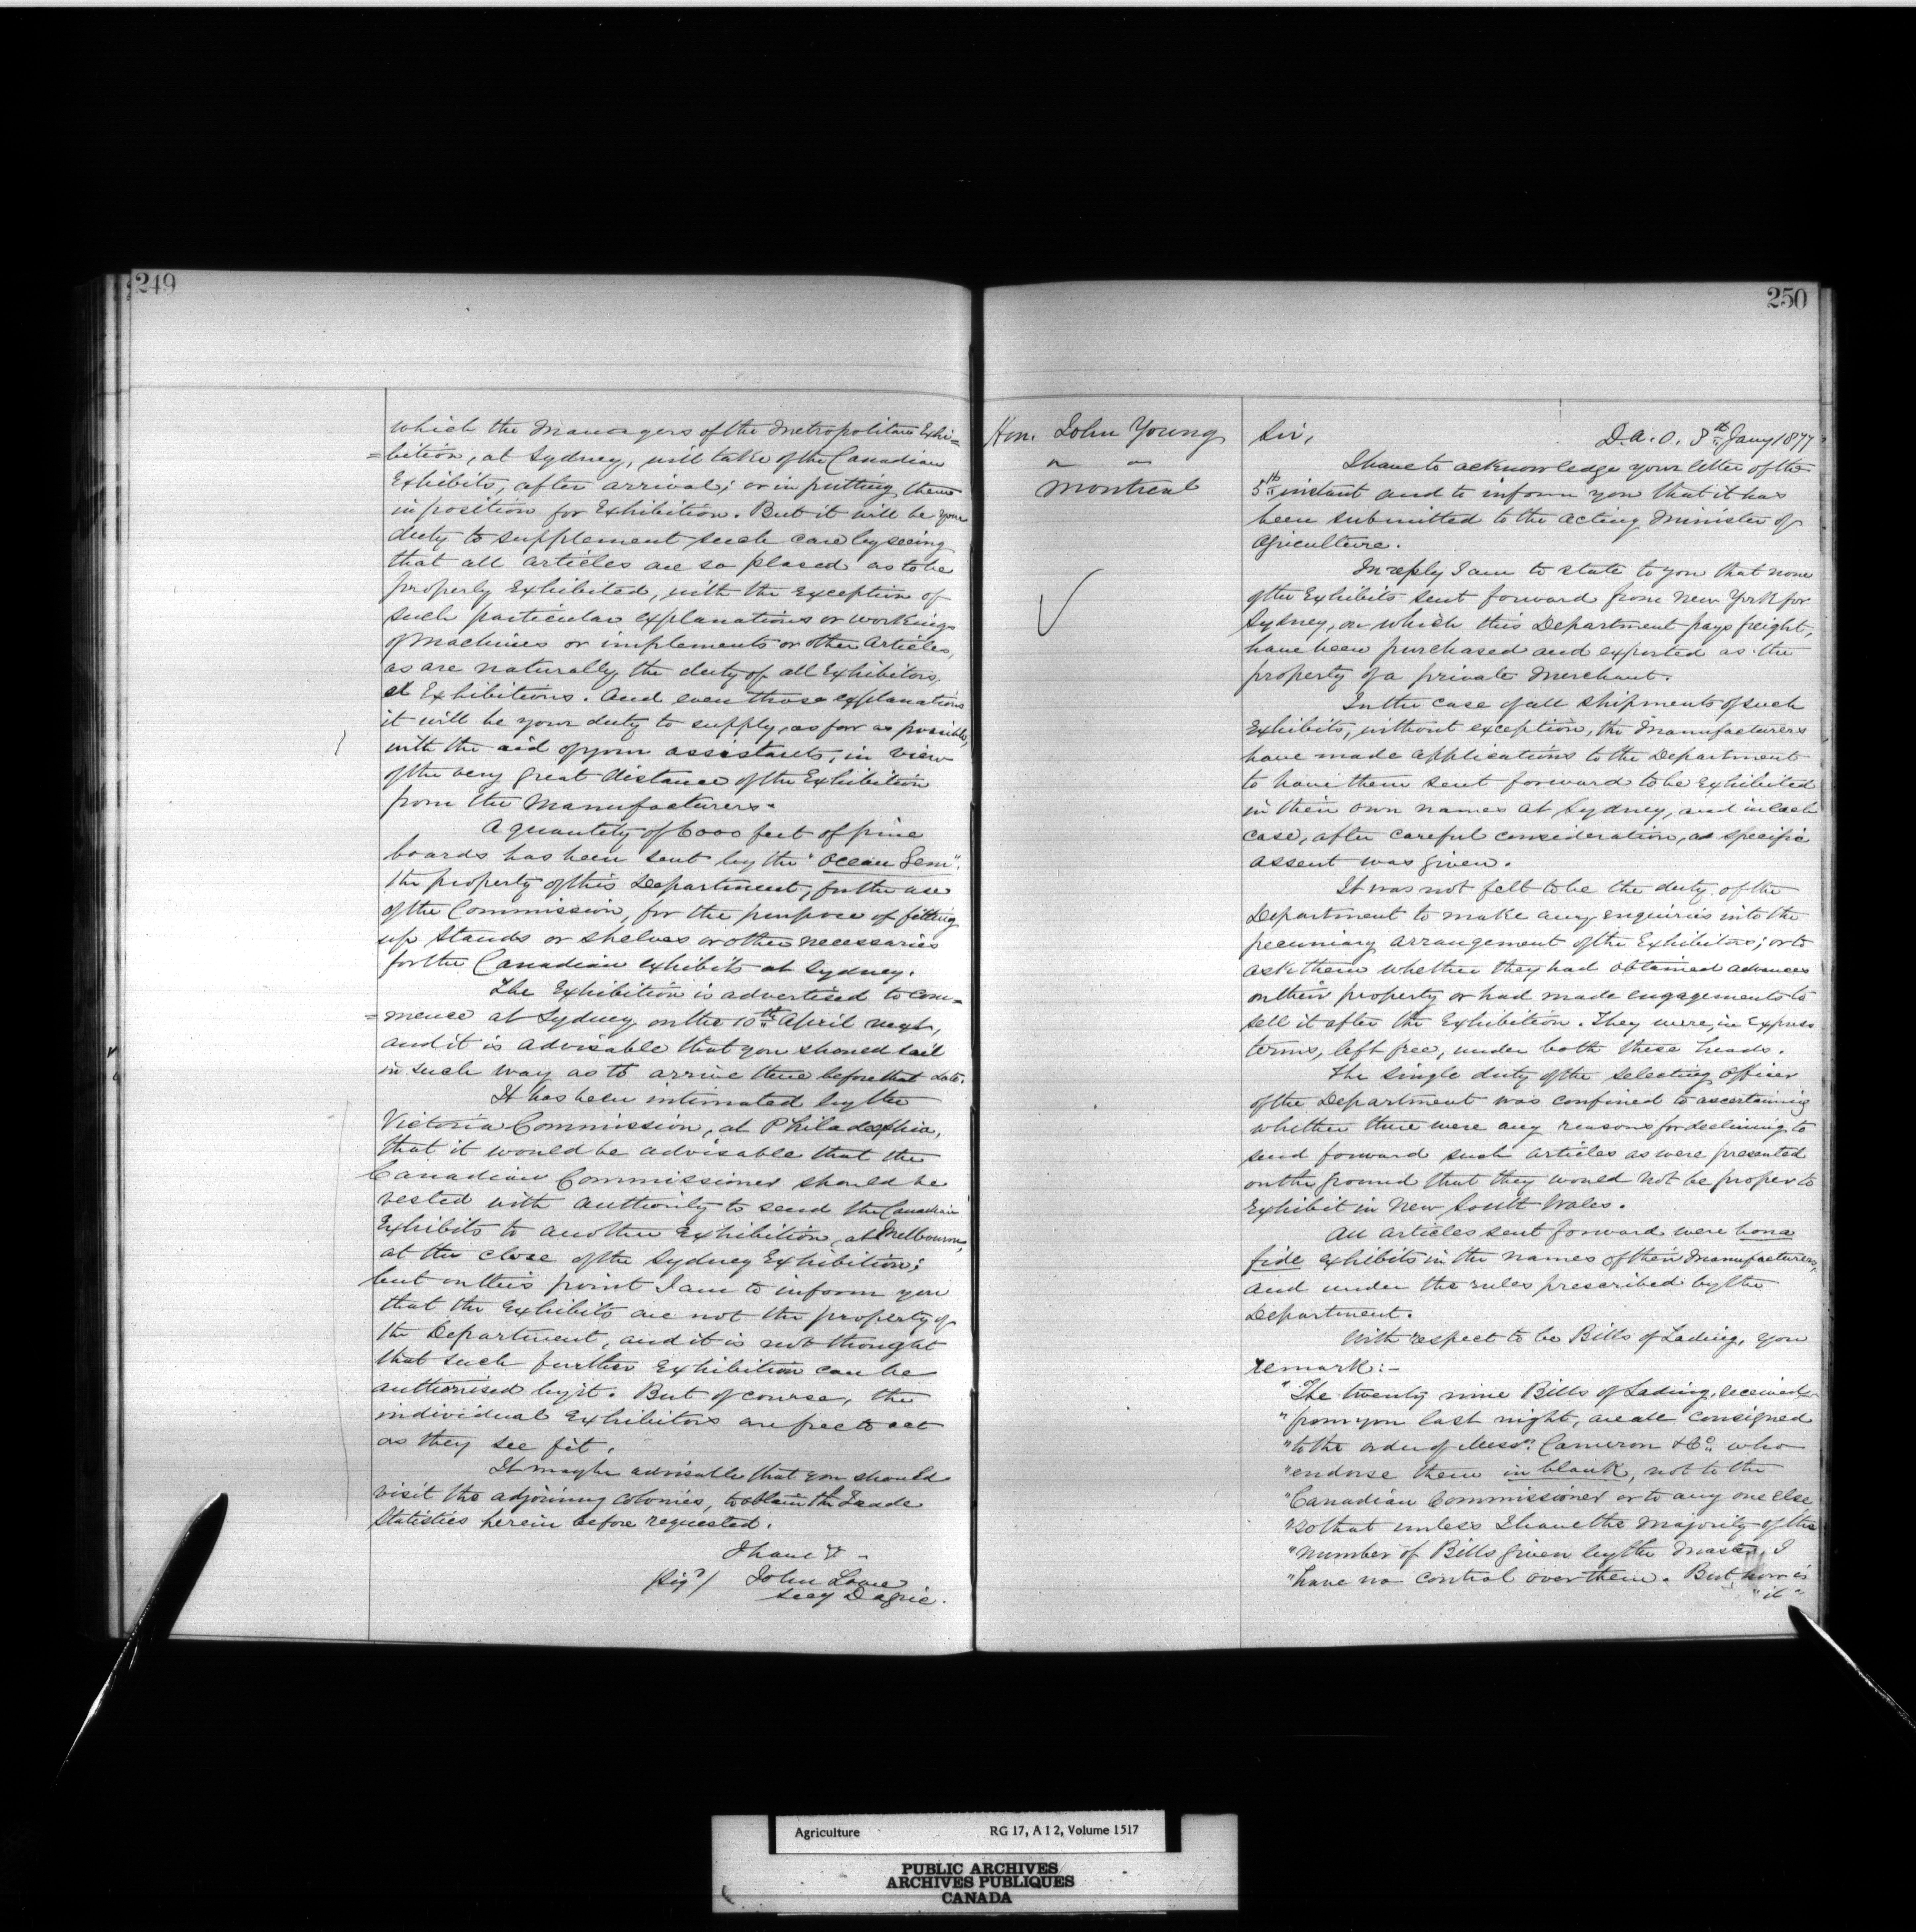 249
which the Managers of the Metropolitan Exhi=
=bition, at Sydney, will take of the Canadian
Exhibits, after arrival; or in putting them
in position for Exhibition. But it will be your
duty to supplement such care by seeing
that all articles are so placed as to be
properly Exhibited, with the Exception of
such particular explanations or workings
of Machines or implements or other Articles,
as are naturally the duty of all Exhibitors,
at Exhibitions. And even those explanations
it will be your duty to supply, as far as possible,
with the aid of your assistants, in view
of the very great distance of the Exhibition
from the Manufacturers.
A quantity of 6000 feet of pine
boards has been sent by the "Ocean Gem",
the property of this Department, for the use
of the Commission, for the purpose of fitting
up Stands or shelves or other necessaries
for the Canadian exhibits at Sydney.
The Exhibition is advertised to Com=
=mence at Sydney on the 10th April next,
and it is advisable that you should sail
in such way as to arrive there before that date.
It has been intimated by the
Victoria Commission, at Philadelphia,
that it would be advisable that the
Canadian Commissioner should be
vested with authority to send the Canadian
Exhibits to another Exhibition, at Melbourne,
at the close of the Sydney Exhibition;
but on this point I am to inform you
that the Exhibits are not the property of
the Department, and it is not thought
that such further Exhibition can be
authorised by it. But of course, the
individual Exhibitors are free to act
as they see fit.
It may be advisable that you should
visit the adjoining colonies, to obtain the Trade
Statistics herein before requested.
I have &
(Sigd) John Lowe
Secy D Agric.
250
Hon. John Young
" "
Montreal
Sir,
D.A.O. 8th Jany 1877
I have to acknowledge your letter of the
5th instant and to inform you that it has
been submitted to the Acting Minister of
Agriculture.
In reply I am to state to you that none
of the Exhibits sent forward from New York for
Sydney, on which this Department pays freight,
have been purchased and exported as the
property of a private Merchant.
In the case of all shipments of such
Exhibits, without exception, the Manufacturers
have made applications to the Department
to have them sent forward to be Exhibited
in their own names at Sydney, and in each
case, after careful consideration, a specific
assent was given.
It was not felt to be the duty of the
Department to make any enquiries into the
pecuniary arrangement of the Exhibitors; or to
ask them whether they had obtained advances
on their property or had made engagements to
sell it after the Exhibition. They were, in Express
terms, left free, under both these heads.
The single duty of the selecting Officer
of the Department was confined to ascertaining
whether there were any reasons for declining to
send forward such articles as were presented
on the ground that they would not be proper to
Exhibit in New South Wales.
All articles sent forward were bona
fide exhibits in the names of their Manufacturers,
and under the rules prescribed by the
Department.
With respect to be Bills of Lading, you
remark:-
"The twenty nine Bills of Lading, received
"from you last night, are all consigned
"to the order of Messrs. Cameron & Co. who
"endorse them in blank, not to the
"Canadian Commissioner or to any one Else
"so that unless I have the Majority of the
"number of Bills given by the Master, I
"have no control over them. But how is
"it"
Agriculture RG 17, A I 2, Volume 1517
PUBLIC ARCHIVES
ARCHIVES PUBLIQUES
CANADA